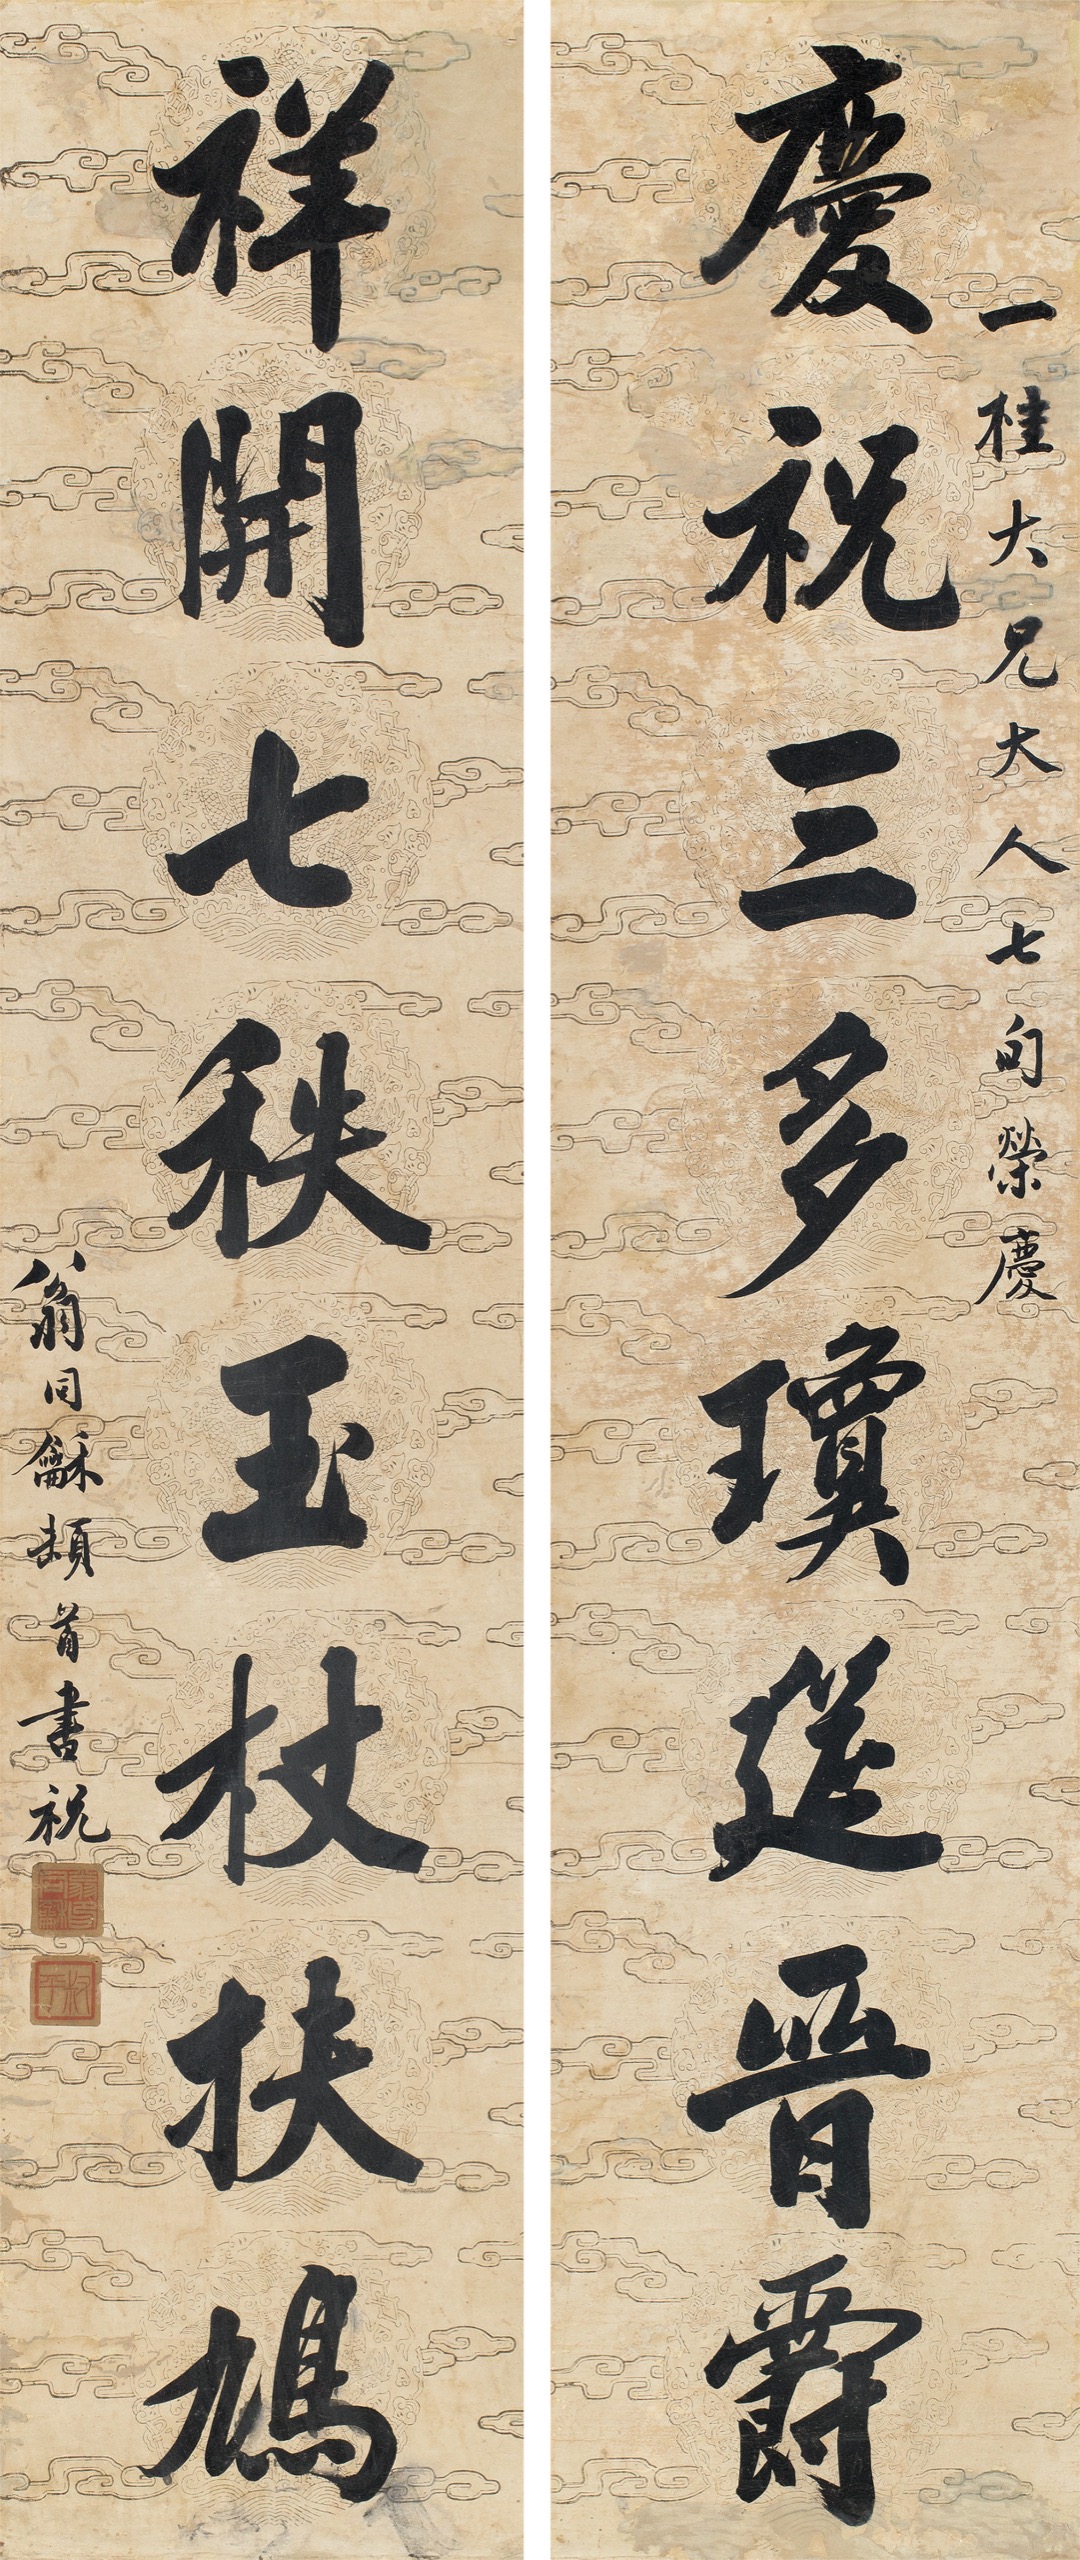 一桂大兄大人七旬榮慶
慶祝三多瓊筵晉爵
祥開七秩玉杖扶鳩
翁同龢頓首書祝
翁同龢印
叔平